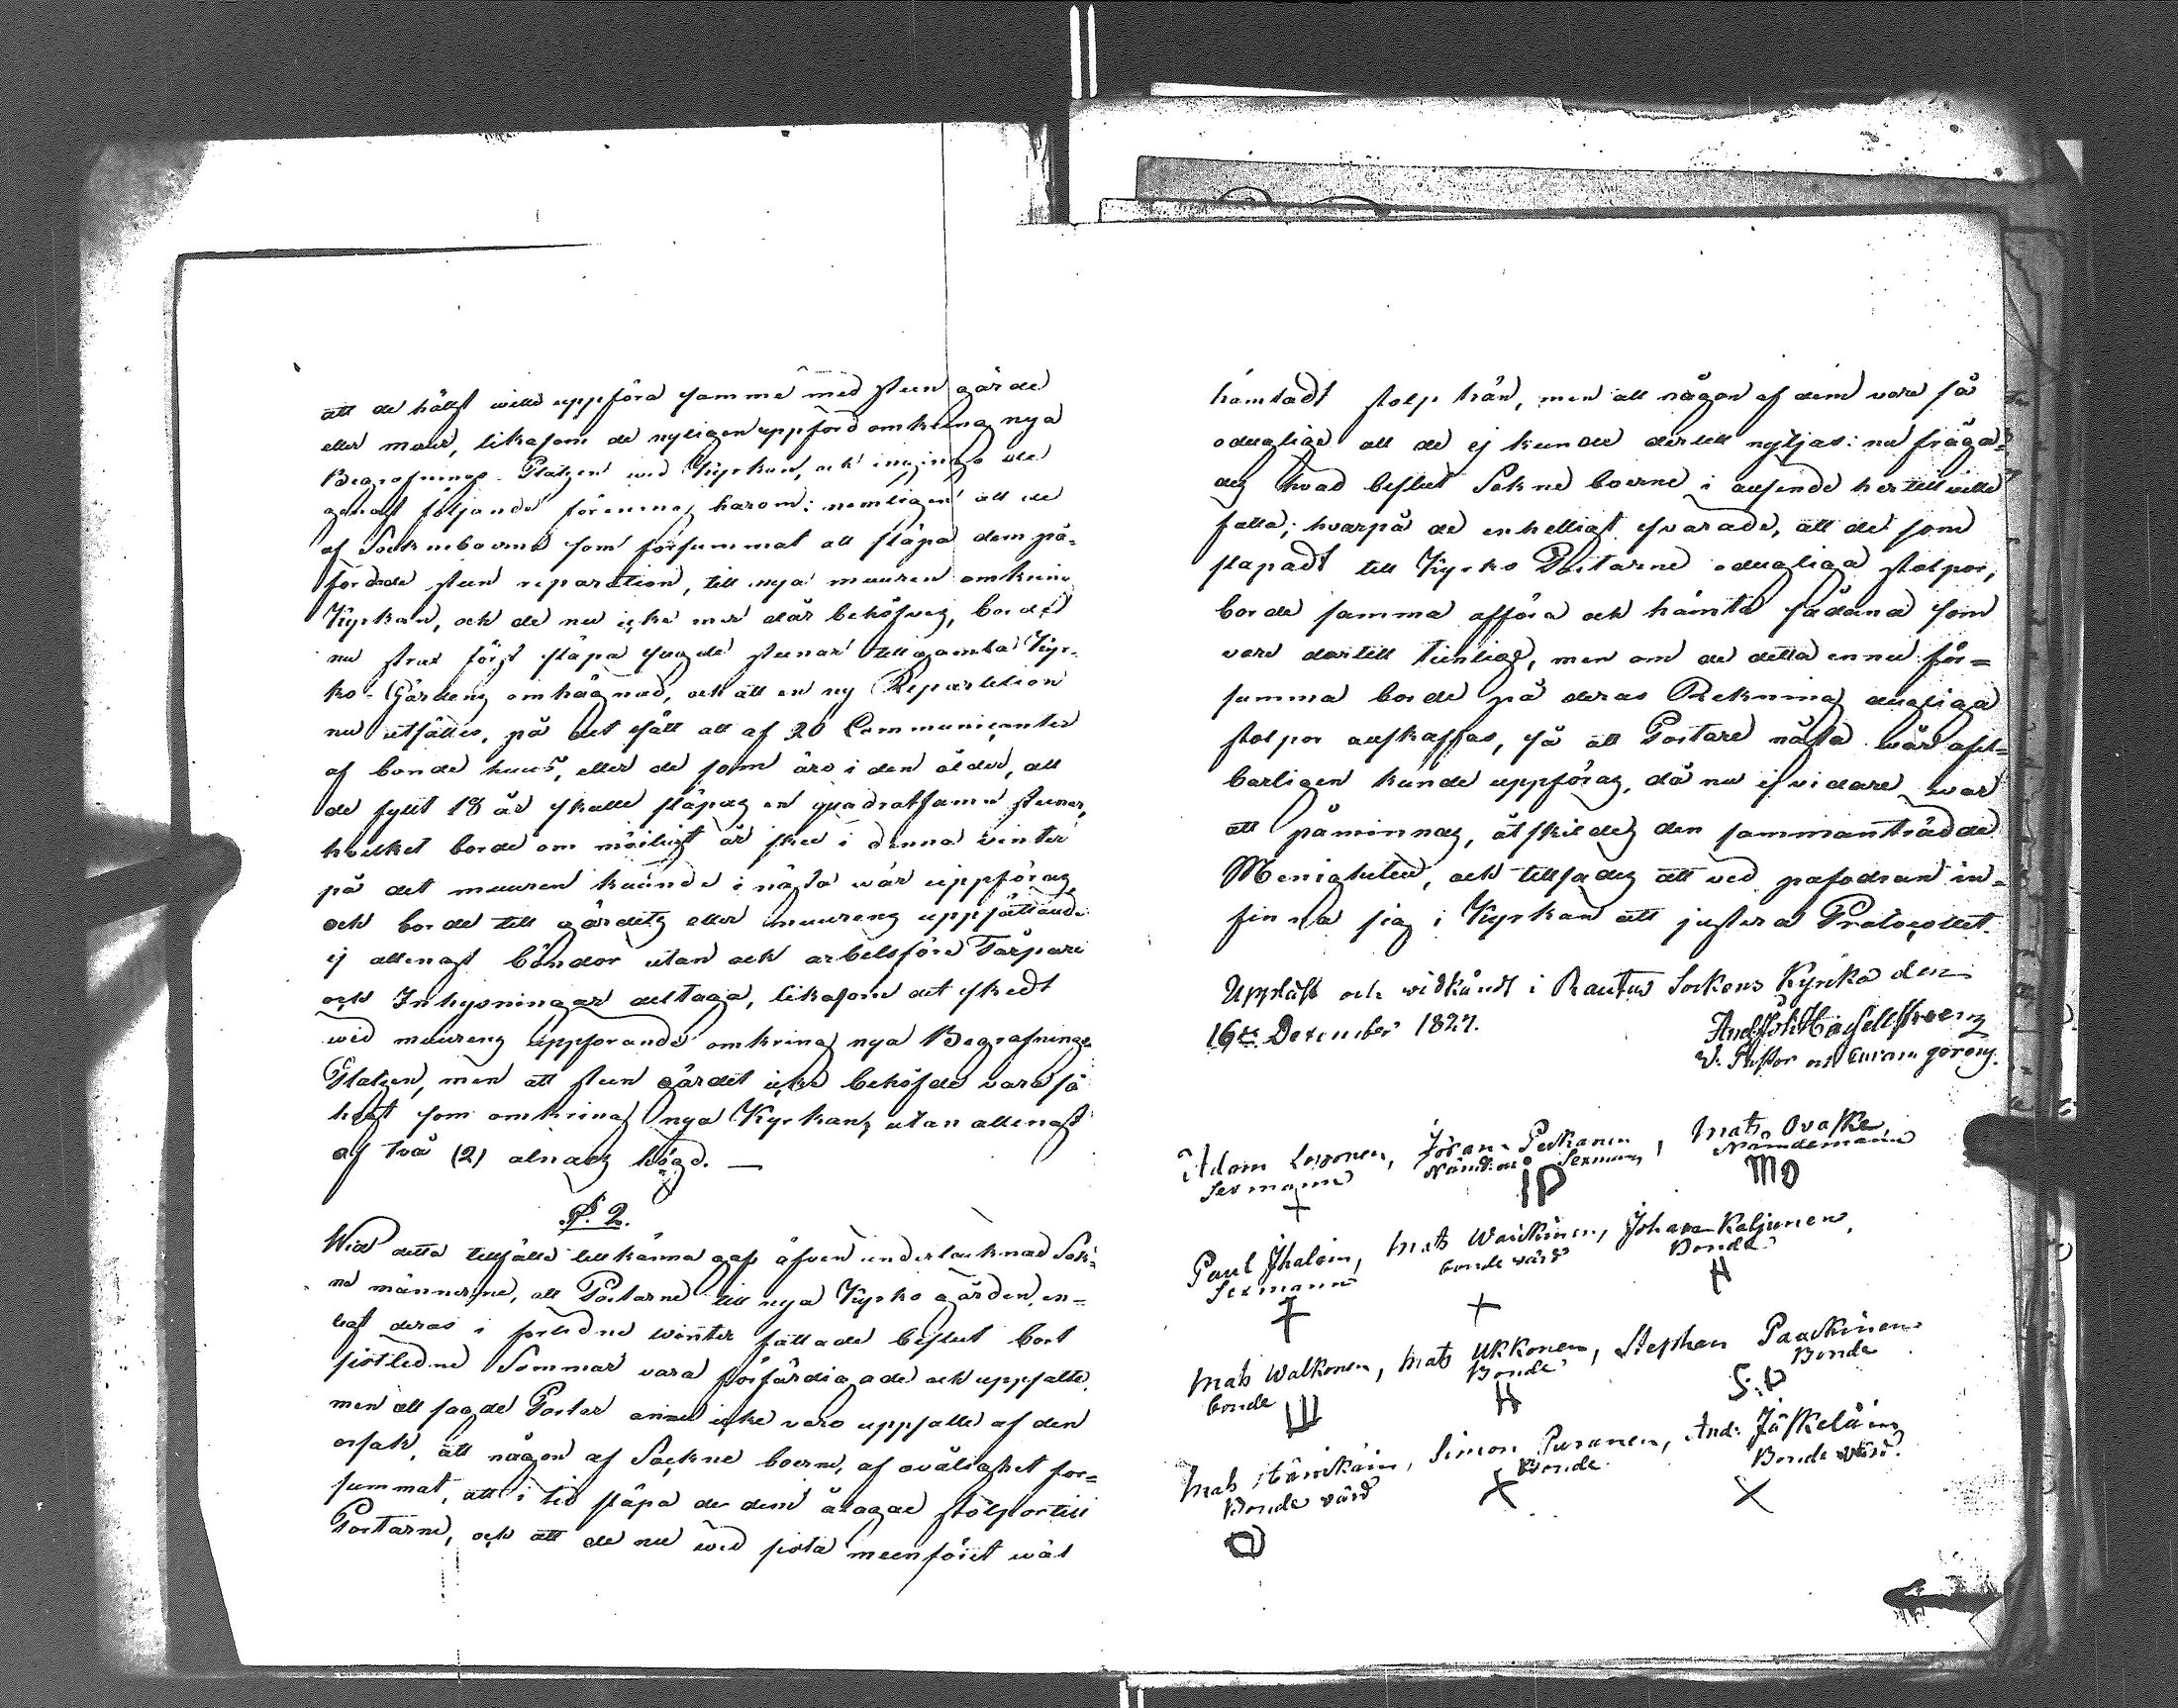 att de hällst wille uppföra samma med steen gärde
eller muur, likasom de nyligen uppförd omkring nya
Begrafnings Platzen wid Kyrkan, och ingingo de
genast följande förening härom: nemligen att de
af Socknboerne som försummat att släpa dem på-
förde steen reparation, till nya muuren omkring
Kyrkan, och de nu icke mer där behöfves, borde
nu strax först släpa sagde steenar till gamla Kyr-
ko-Gårdens omhägnad, och att en ny Repartition
nu utsättes, på det sätt att af 20 Communicanter
af bonde huus, eller de som äro i den ålder, att
de fyllt 18 år skulle släpas en quadratfamn steenar,
hvilket borde om möiligt är skee i denna winter
på det muuren kuunde i nästa wår uppföras,
och borde till gärdets eller muurens uppsättande
ej allenast bönder utan och arbetsföre Torpare
och Inhysningar deltaga, likasom det skedt
wid muurens uppförande omkring nya Begrafnings
Platzen, men att steen gärdet icke behöfde vara så
högt som omkring nya Kyrkans utan allenast
af två (2) alnars högd. —
P. 2.
Wid detta tillfälle tillkänna gafs äfven underteknad Sok-
ne männerne, att Portarne till nya Kyrko gården, en-
ligt deras i förledne winter fattade beslut bort
sistledne Sommar vara förfärdigade och uppsatte,
men att sagde Portar ännu icke voro uppsatte af den
orsak, att någon af Sockne boerne, af ovälighet för-
summat, att i tid släpa de dem ålagde stolpor till
Portarne, och att de nu wid sista meenföret wäl
hämtadt stolp trän, men att någon af dem vore så
odueglige att de ej kunde dertill nyttjas: nu fråga-
des hvad beslut Sokne boerne i afseende hertill wille
fatta; hvarpå de enhelligt svarade, att de som
släpadt till Kyrko Portarne odugliga stolpor,
borde samma afföra och hämta sådana som
vore dertill tienlige, men om de detta ennu för-
summa borde på deras Rekning dugliga
stolpor anskaffas, så att Portare nästa wår ofel-
barligen kunde uppföras, då nu ej vidare war
att påminnas, åtskildes den sammanträdde
Menigheten, och tillsades att ved påfodran in-
finna sig i Kyrkan att justera Protocollet.
Uppläst och widkändt i Rautus Sockens Kyrka den
16de December 1827.
And Joh Hägellstroem
V. Pastor och Curam gerens.
Adam Loponen, Jöran Pekkanen, Mats Ovaske,
Sexmann Nämdem: o Sexman Nämndemann
+ IP MO
Paul Ihalain, Mats Waitkinen, Johan Kaljunen,
Sexmann bonde värd Bonde
+ H
Mats Walkonen, Mats Ukkonen, Stephan Paackinen
bonde Bonde Bonde
H S.P
Mats Simon Puranen, And: Jäskeläin
Bonde värd Bonde Bonde värd
X X